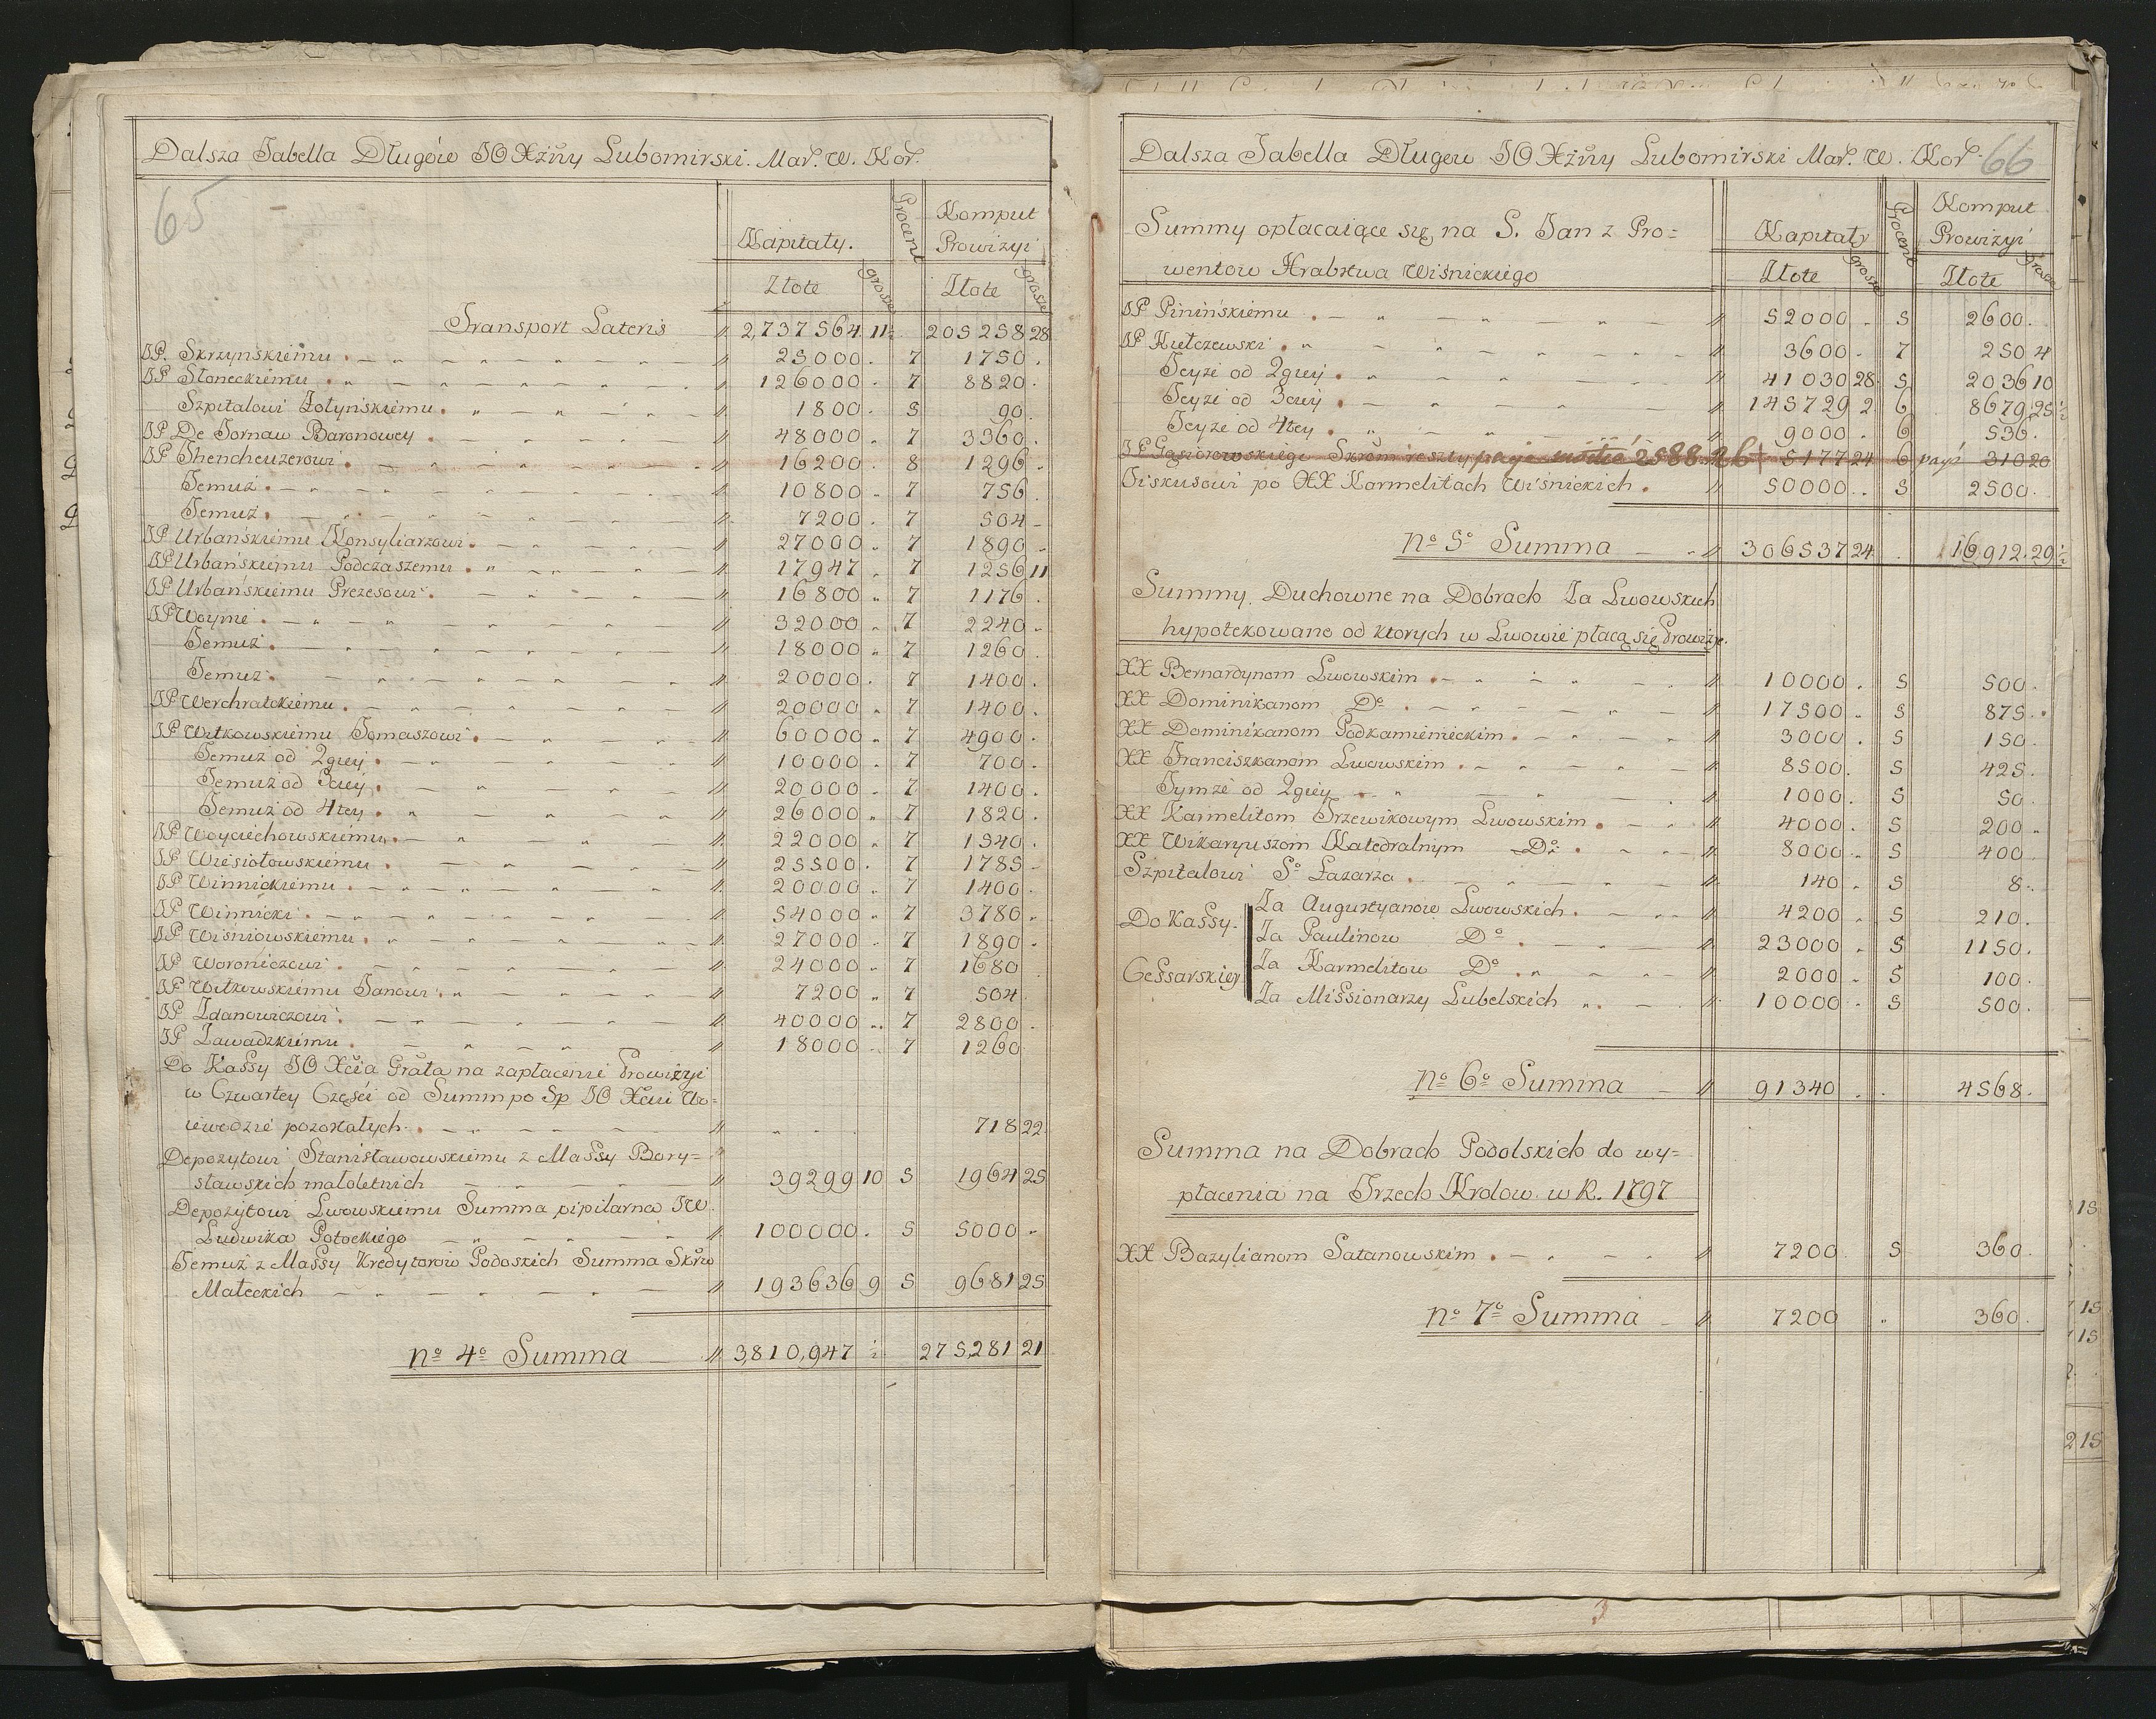 Dalsza Tabella Długów JO Xżny Lubomirski. Mar. W. Kor.
65
Kapitały. Procent Komput Prowizyi
Złote grosze Złote grosze
Transport Lateris 2,737564 11½ 205258 28
JP. Skrzynskiemu 25000 7 1750
JP Słoneckiemu 126000 7 8820
Szpitalowi Żołyńskiemu 1800 5 90
JP De Tornau Baronowey 48000 7 3360
JP Shencheuzerowi 16200 8 1296
Temuż 10800 7 756
Temuż 7200 7 504
JP Urbańskiemu Konsyliarzowi 27000 7 1890
JP Urbańskiemu Podczaszemu 17947 7 1256 11
JP Urbańskiemu Prezesowi 16800 7 1176
JP Woynie 32000 7 2240
Temuż 18000 7 1260
Temuż 20000 7 1400
JP Werchratskiemu 20000 7 1400
JP Witkowskiemu Tomaszowi 60000 7 4900
Temuż od 2giey 10000 7 700
Temuż od 3ciey 20000 7 1400
Temuż od 4tey 26000 7 1820
JP Woyciechowskiemu 22000 7 1540
JP Wiesiołowskiemu 25500 7 1785
JP Winnickiemu 20000 7 1400
JP Winnicki 54000 7 3780
JP Wiśniowskiemu 27000 7 1890
JP Woroniczowi 24000 7 1680
JP Witkowskiemu Janowi 7200 7 504
JP Zdanowiczowi 40000 7 2800
JP Zawadzkiemu 18000 7 1260
Do Kassy JO Xcia Grata na zapłacenie Prowizyi
w Czwartey Częsci od Summ po Sp JO Xciu Wo=
iewodzie pozostałych 718 22
Depozytowi Stanisławowskiemu z Massy Bory=
sławskich małoletnich 39299 10 5 1964 25
Depozytowi Lwowskiemu Summa pipilarna JW
Ludwika Potockiego 100000 5 5000
Temuż z Massy Kredytorow Podoskich Summa Skrw
Małeckich 193636 9 5 9681 25
No 4o Summa 3,810,947 ½ 275,281 21
Dalsza Tabella Długow JO Xżny Lubomirski Mar. W. Kor.
66
Summy opłacaiące się na S. Jan z Pro=
wentow Hrabstwa Wisnickiego
Kapitały Procent Komput Prowizyi
Złote grosze Złote grosze
JP Pininśkiemu 52000 5 2600
JP Kiełczewski 3600 7 250 4
Teyże od 2giey 41030 28 5 2036 10
Teyże od 3ciey 145729 2 6 8679 25½
Teyże od 4tey 9000 6 536
JP Gąsiorowskiego 2588 26 5177 24 6 310 20
Fiskusowi po XX Karmelitach Wiśnickich 50000 5 2500
No 5o Summa 306537 24 16,912 29½
Summy Duchowne na Dobrach Za Lwowskich
hypotekowane od ktorych w Lwowie płacą się Prowizye
XX Bernardynom Lwowskim 10000 5 500
XX Dominikanom Do 17500 5 875
XX Dominikanom Podkamienieckim 3000 5 150
XX Franciszkanom Lwowskim 8500 5 425
Tymże od 2giey 1000 5 50
XX Karmelitom Trzewikowym Lwowskim 4000 5 200
XX Wikaryuszom Katedralnym Do 8000 5 400
Szpitalowi So Łazarza 140 5 8
Do Kassy Cessarskiey
Za Augustyanow Lwowskich 4200 5 210
Za Paulinow Do 23000 5 1150
Za Karmelitow Do 2000 5 100
Za Missionarzy Lubelskich 10000 5 500
No 6o Summa 91340 4568
Summa na Dobrach Podolskich do wy=
płacenia na Trzech Krolow w R. 1797
XX Bazylianom Satanowskim 7200 5 360
No 7o Summa 7200 360